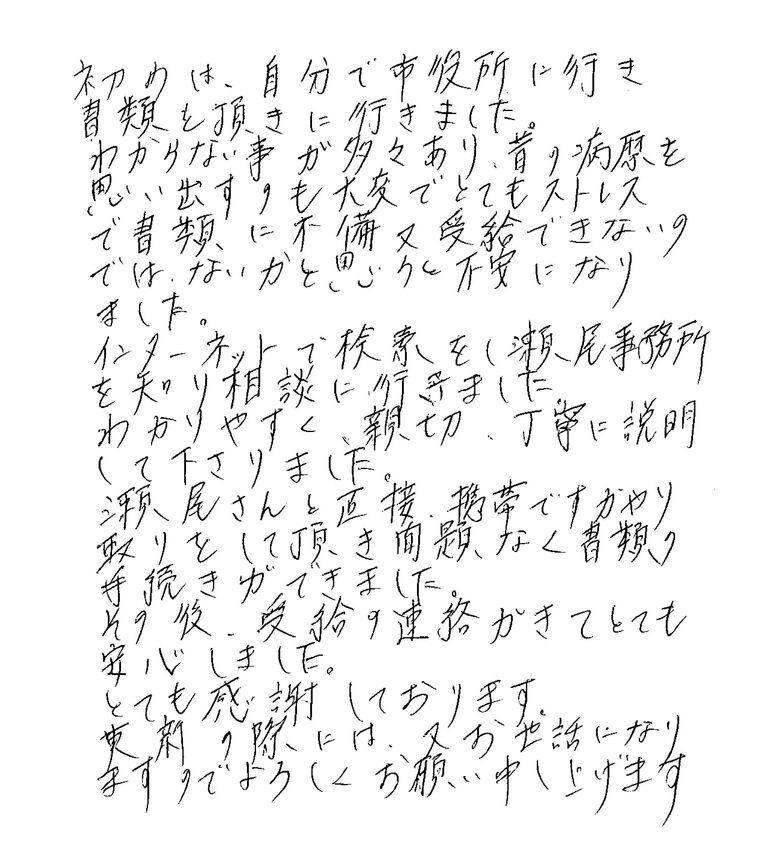 初めは、自分で市役所に行き
書類を頂きに行きました。
わからない事が多々あり、昔の病歴を
思い出すのも大変でとてもストレス
で書類に不備又受給できないの
では、ないかと思うと不安になり
ました。
インターネットで検索をし瀬尾事務所
を知り相談に行きました。
わかりやすく、親切、丁寧に説明
して下さりました。
瀬尾さんと直接、携帯ですがやり
取りをして頂き問題なく書類の
手続きができました。
その後、受給の連絡がきてとても
安心しました。
とても感謝しております。
更新の際には、又お世話になり
ますのでよろしくお願い申し上げます